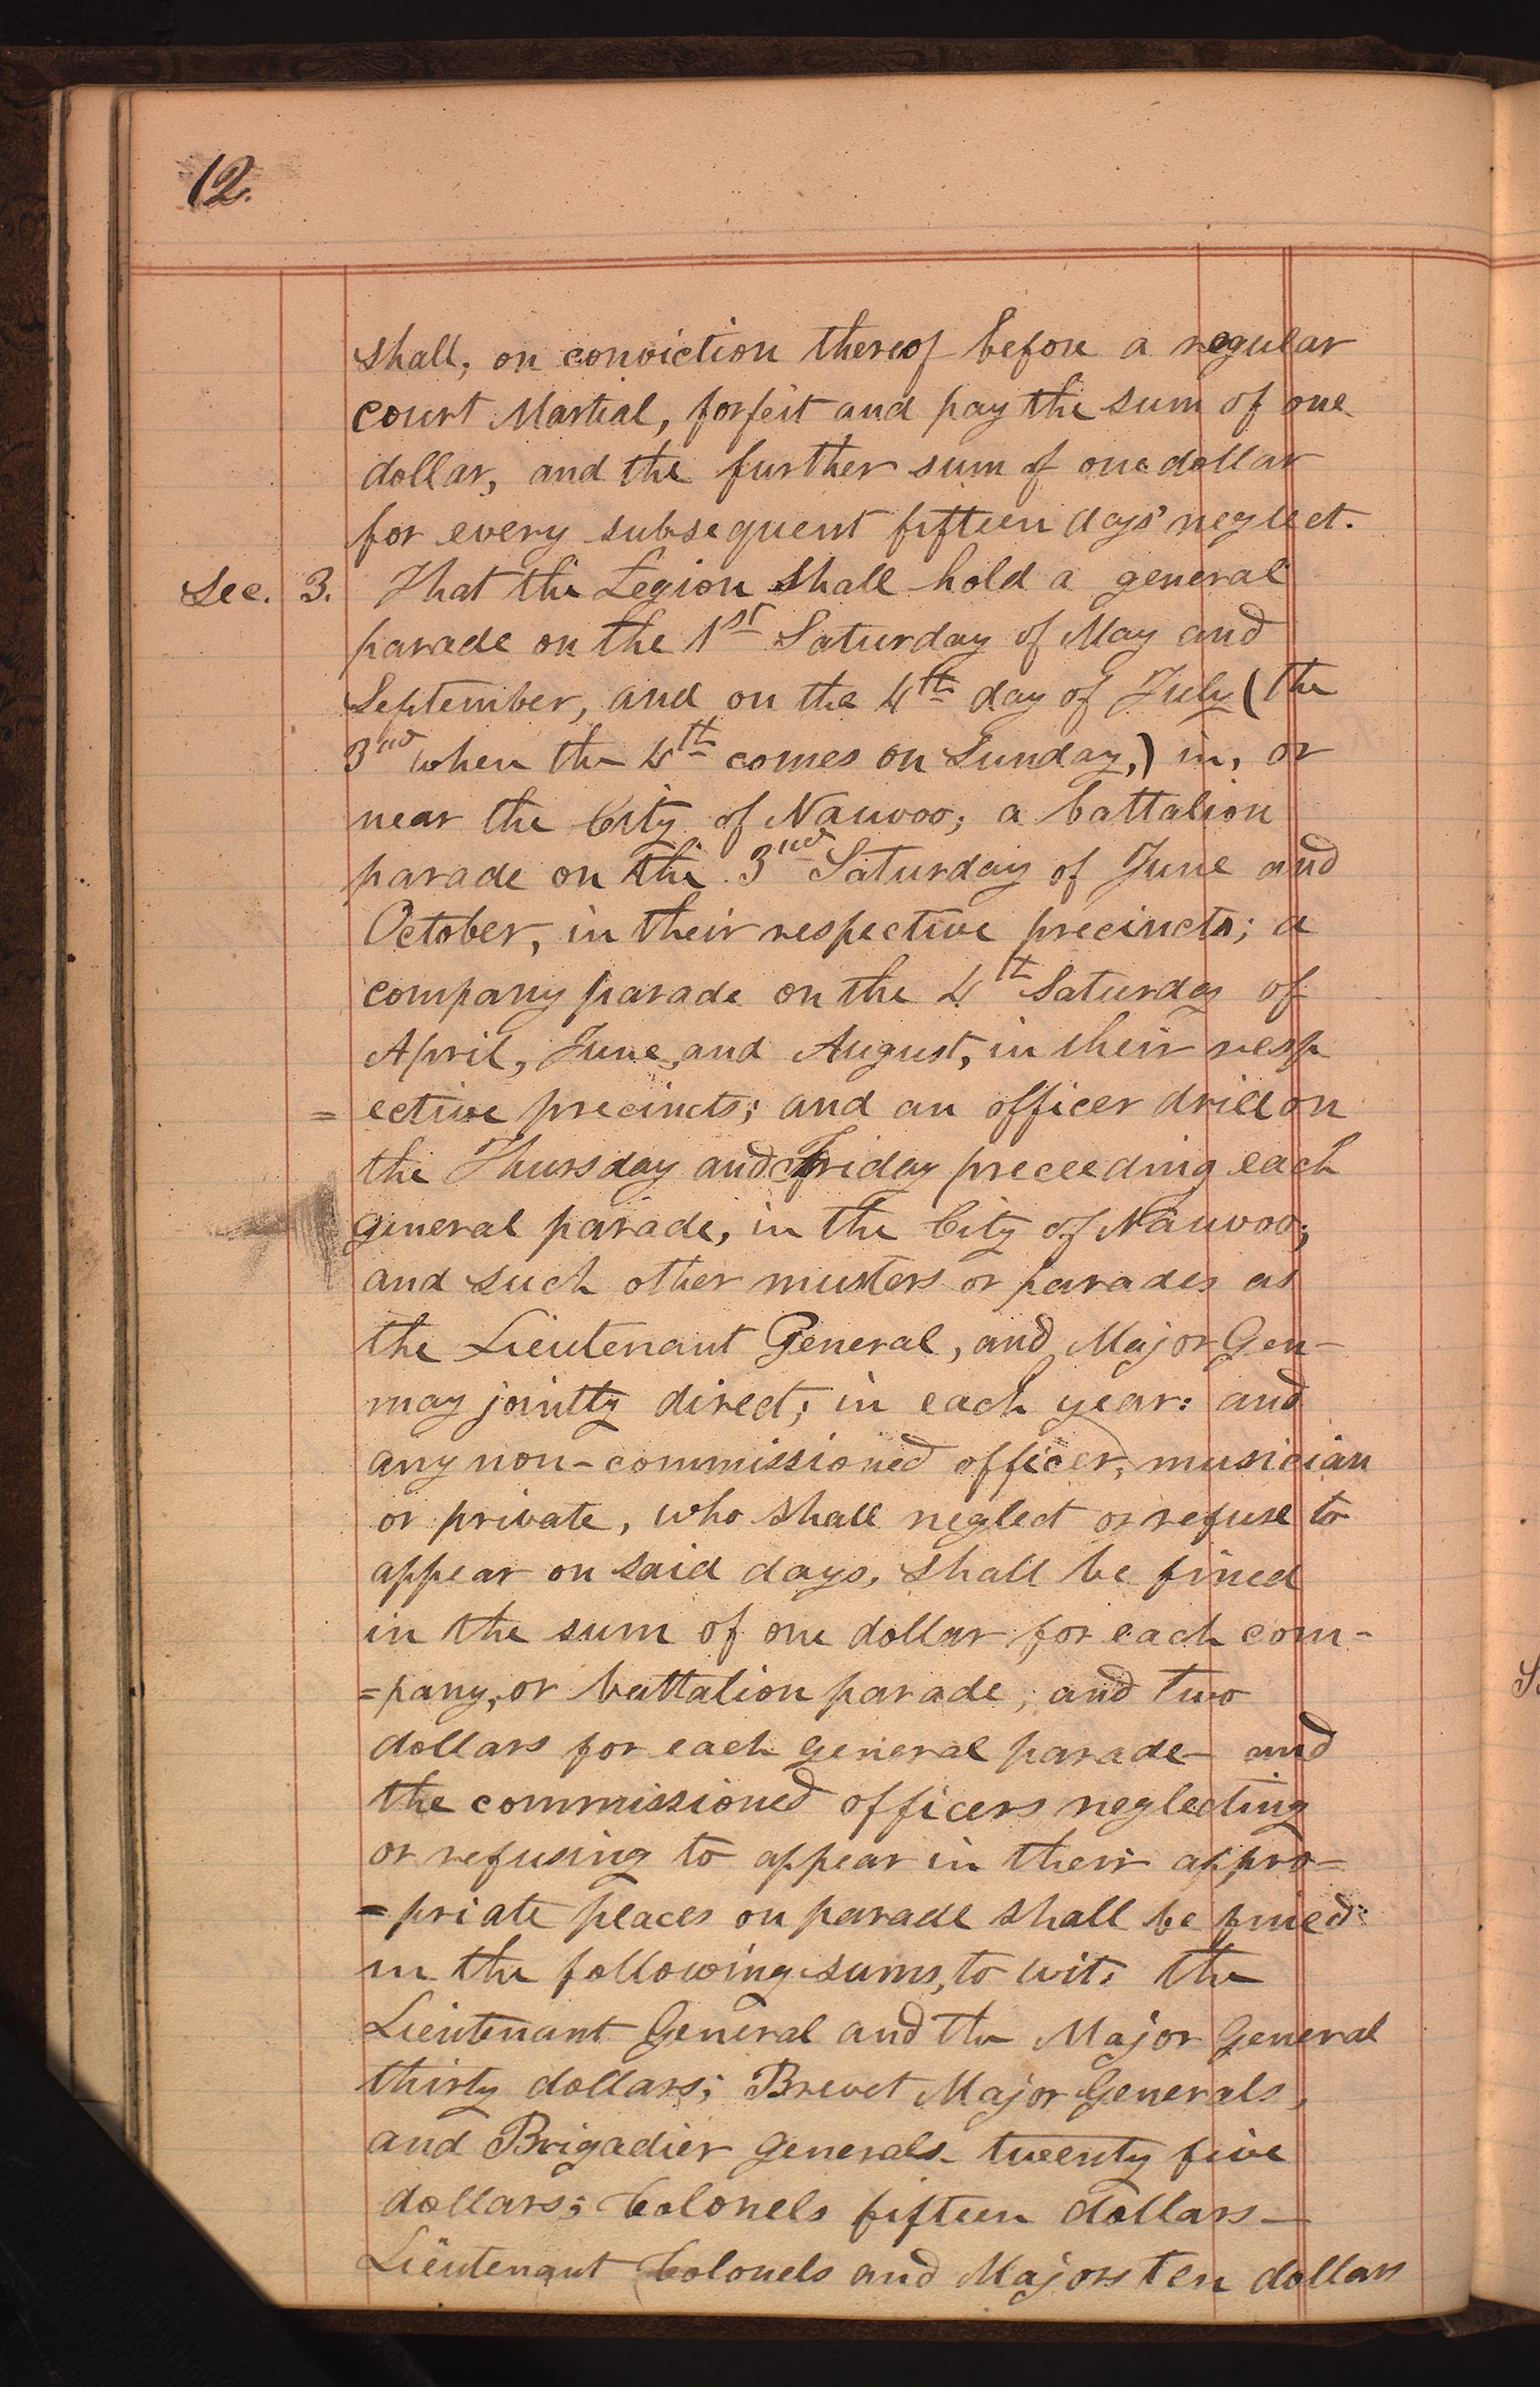 12.
shall, on conviction thereof before a regular
court Martial, forfeit and pay the sum of one
dollar, and the further sum of one dollar
for every subsequent fifteen days' neglect.
Sec. 3. That the Legion shall hold a general
parade on the 1st Saturday of May and
September, and on the 4th day of July (the
3nd when the 4th comes on Sunday,) in, or
near the City of Nauvoo; a battalion
parade on the 3nd Saturday of June and
October, in their respective precincts; a
company parade on the 4th Saturday of
April, June, and August, in their resp
= ective precincts; and an officer drill on
the Thursday and Friday preceeding each
general parade, in the City of Nauvoo;
and such other musters or parades as
the Lieutenant General, and Major Gen-
may jointly direct; in each year: and
any non-commissioned officer, musician
or private, who shall neglect or refuse to
appear on said days, shall be fined
in the sum of one dollar for each com-
=pany, or battalion parade, and two
dollars for each general parade- and
the commissioned officers neglecting
or refusing to appear in their appro=
=priate places on parade shall be fined
in the following sums, to wit: the
Lieutenant General and the Major General
thirty dollars; Brevet Major Generals,
and Brigadier Generals- twenty five
dollars; Colonels fifteen dollars-
Lieutenant Colonels and Majors ten dollars